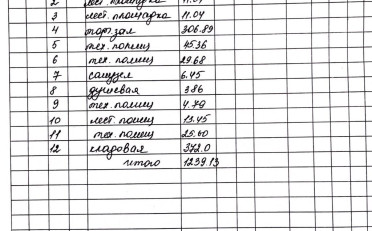 2 лест. площадка 11.04
3 лест. площадка 11.04
4 торг.зал 306.89
5 тех. помещ 45.36
6 тех. помещ 29.68
7 санузел 6.45
8 душевая 3.86
9 тех. помещ 4.79
10 лест. помещ 13.45
11 тех. помещ 25.60
12 кладовая 372.0
итого 1239.13